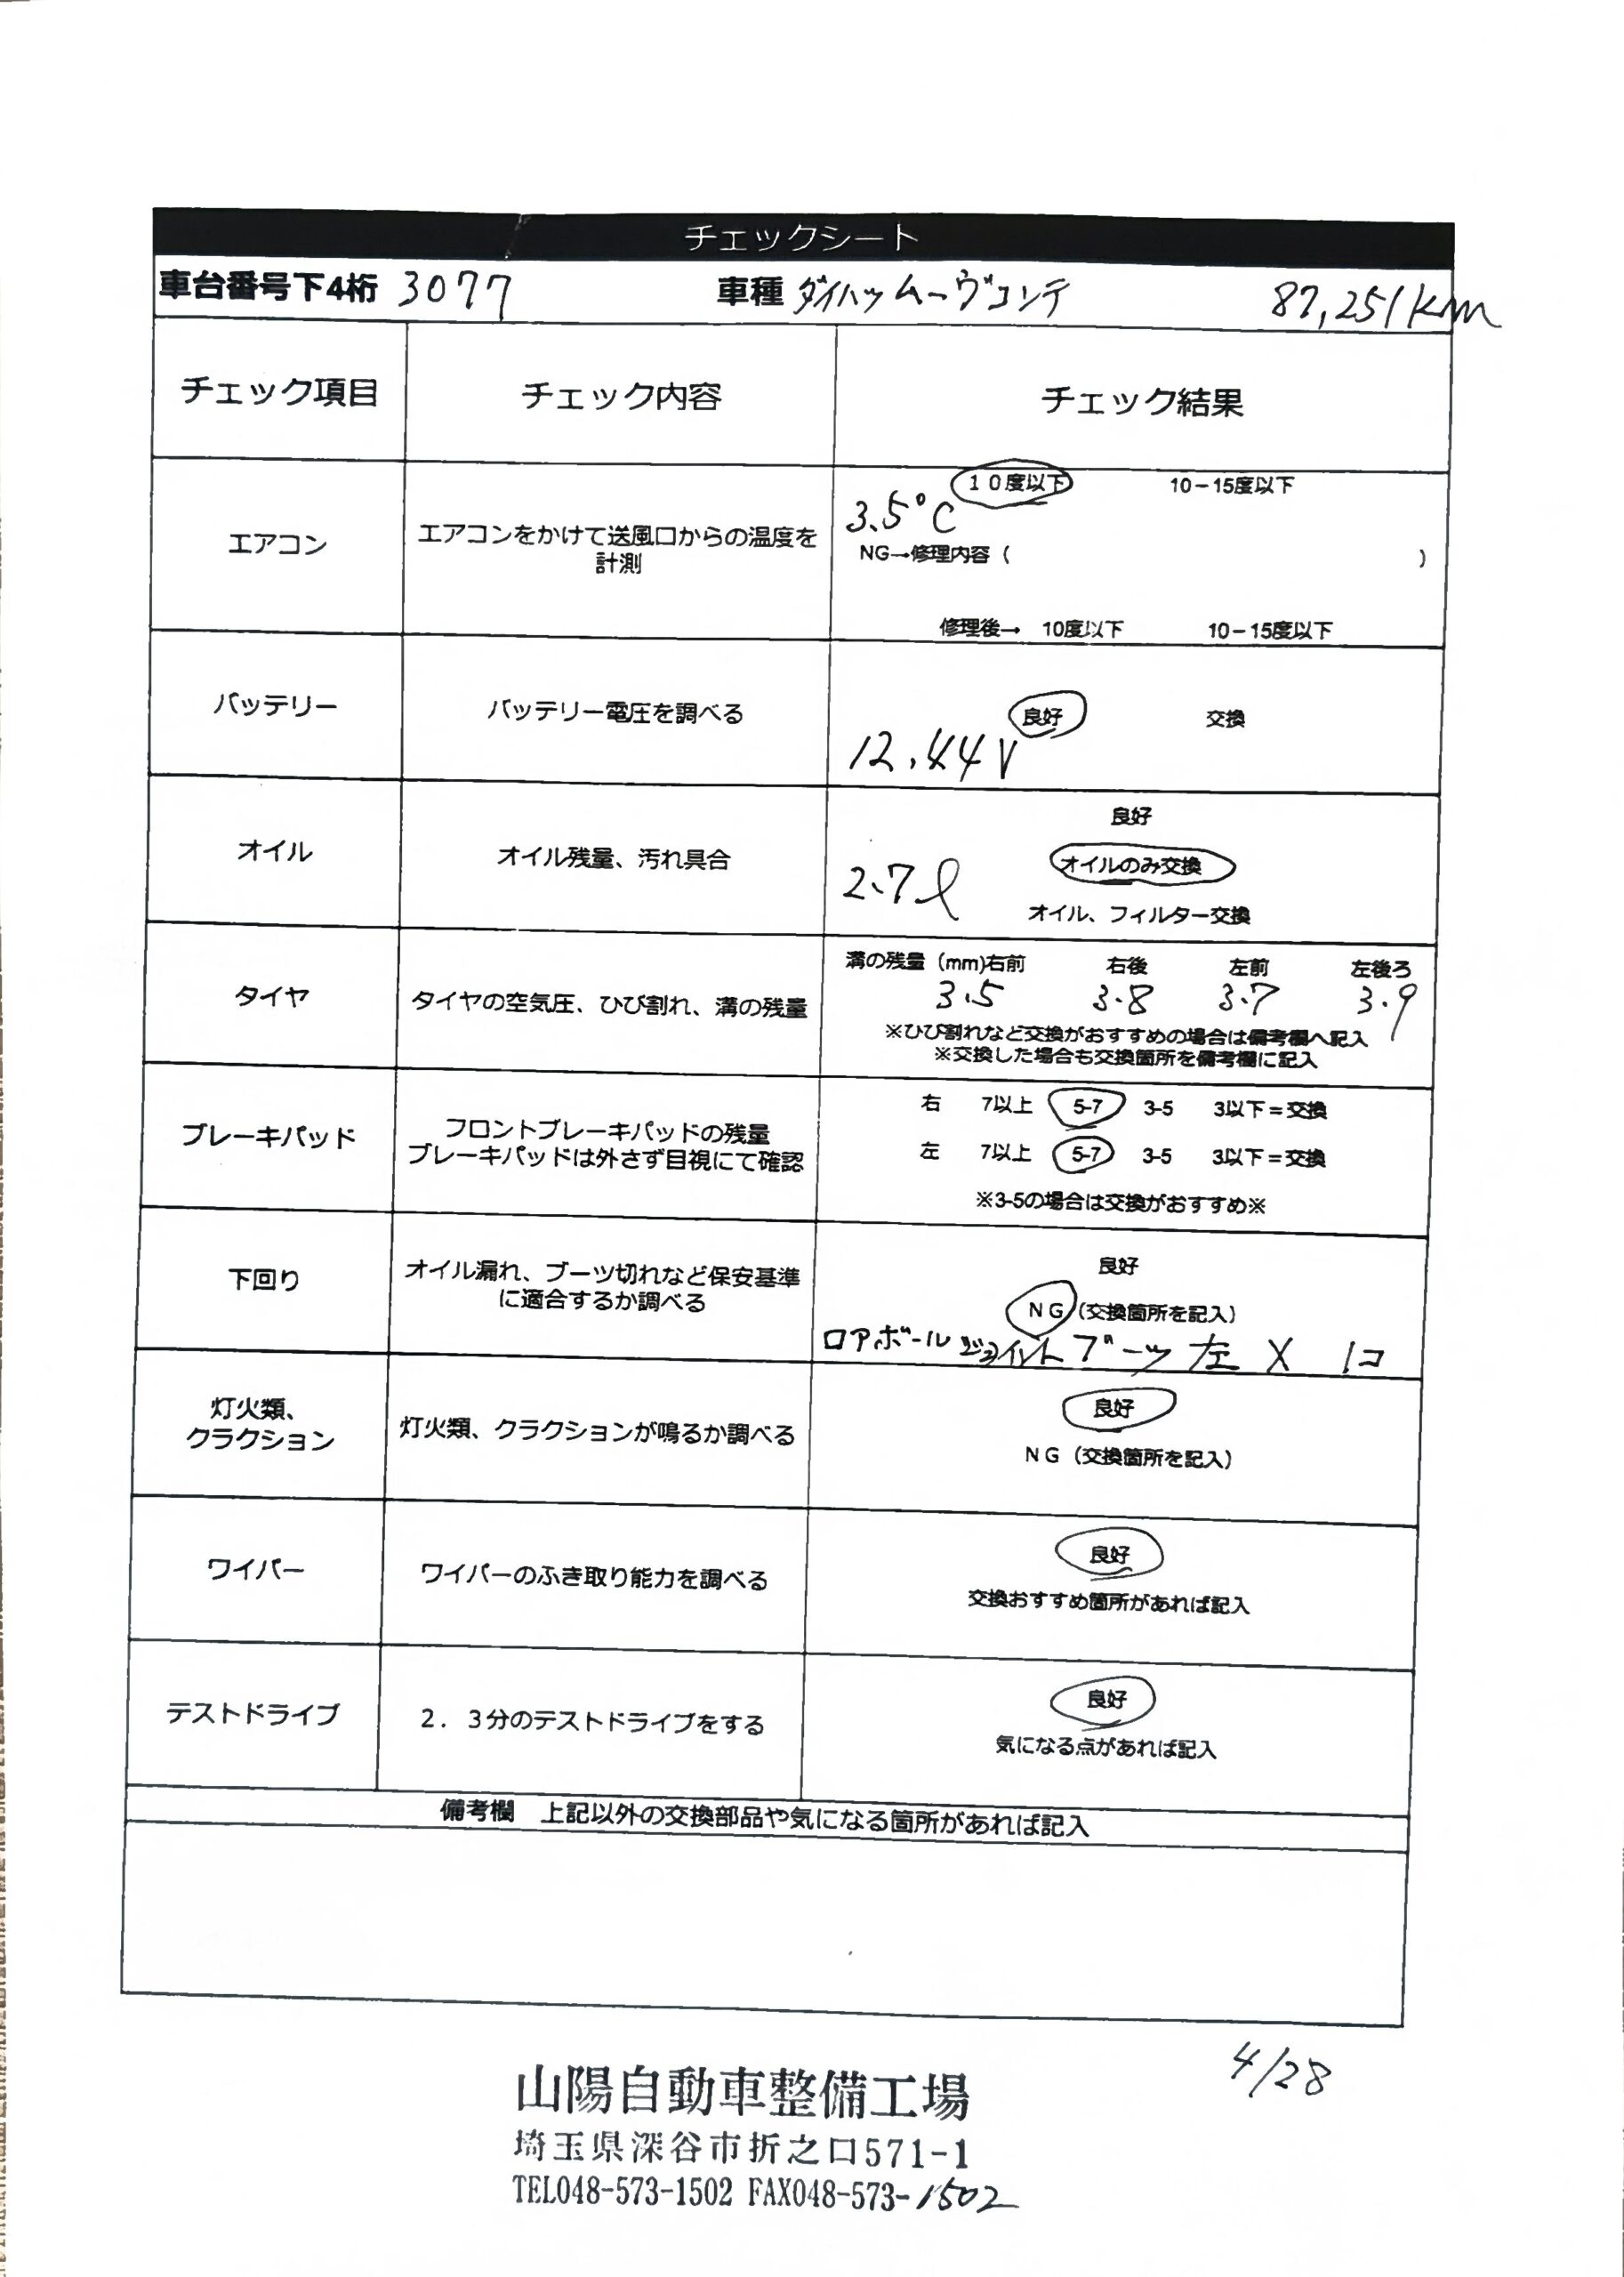 チェックシート
車台番号下4桁 3077 車種 ダイハツ ムーヴコンテ 87,251km
チェック項目 チェック内容 チェック結果
エアコン
エアコンをかけて送風口からの温度を
計測
10度以下 10-15度以下
3.5℃
NG→修理内容( )
修理後→ 10度以下 10-15度以下
バッテリー
バッテリー電圧を調べる
良好 交換
12.44V
オイル
オイル残量、汚れ具合
良好
2.7ℓ オイルのみ交換
オイル、フィルター交換
タイヤ
タイヤの空気圧、ひび割れ、溝の残量
溝の残量(mm)右前 右後 左前 左後ろ
3.5 3.8 3.7 3.9
※ひび割れなど交換がおすすめの場合は備考欄へ記入
※交換した場合も交換箇所を備考欄に記入
ブレーキパッド
フロントブレーキパッドの残量
ブレーキパッドは外さず目視にて確認
右 7以上 5-7 3-5 3以下=交換
左 7以上 5-7 3-5 3以下=交換
※3-5の場合は交換がおすすめ※
下回り
オイル漏れ、ブーツ切れなど保安基準
に適合するか調べる
良好
NG(交換箇所を記入)
ロアボールジョイントブーツ左 X 1コ
灯火類、
クラクション
灯火類、クラクションが鳴るか調べる
良好
NG(交換箇所を記入)
ワイパー
ワイパーのふき取り能力を調べる
良好
交換おすすめ箇所があれば記入
テストドライブ
2.3分のテストドライブをする
良好
気になる点があれば記入
備考欄 上記以外の交換部品や気になる箇所があれば記入
4/28
山陽自動車整備工場
埼玉県深谷市折之口571-1
TEL048-573-1502 FAX048-573-1502